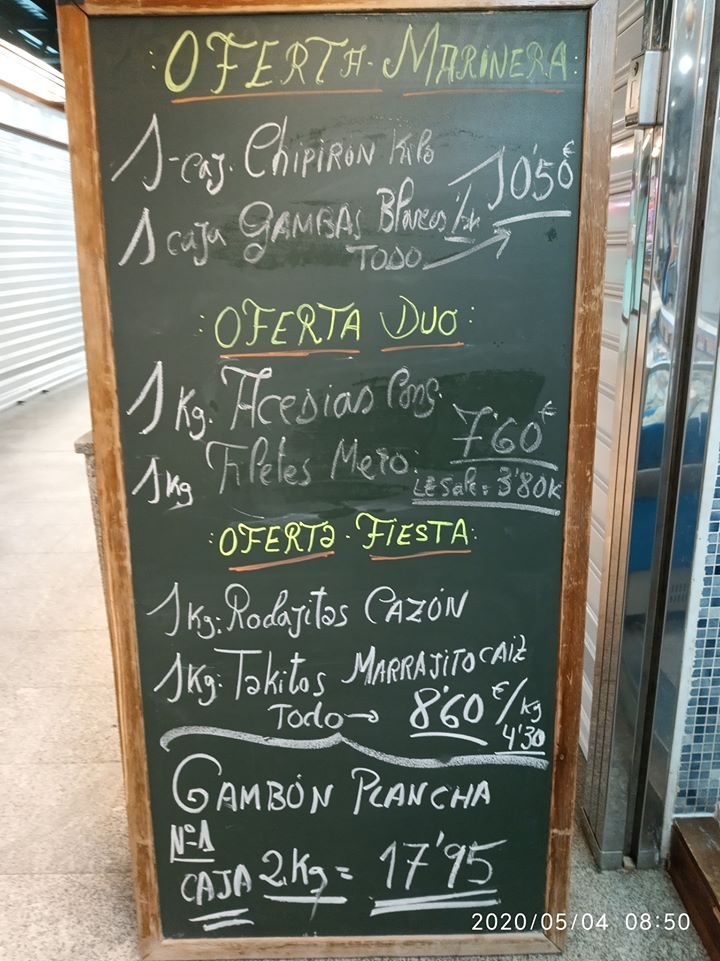 : OFERTA - MARINERA :
1 - caj. Chipiron Kilo
10'50€
1 caja GAMBAS Blancas
TODO
: OFERTA DUO :
1 Kg. Acesias Cong.
7'60€
1 kg Filetes Mero:
LE Sale = 3'80K
: OFERTA - FIESTA :
1 Kg: Rodajitas CAZÓN
1 Kg: Takitos MARRAJITO CAIZ
Todo → 8'60 €/kg
4'30
GAMBÓN PLANCHA
Nº1
CAJA 2Kg = 17'95
2020/05/04 08:50